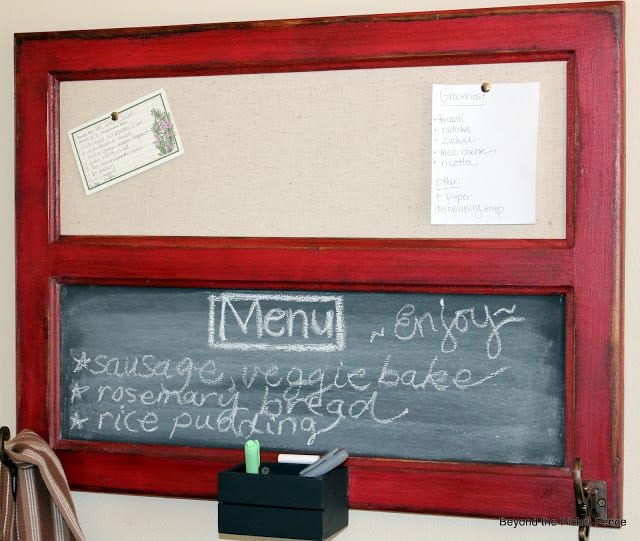 Groceries:
• broccoli
• radishes
• zucchini
• moz. cheese
• ricotta
Other:
• paper
dishwashing soap
Menu ~Enjoy~
*sausage, veggie bake
*rosemary bread
*rice pudding
Beyond the Picket Fence